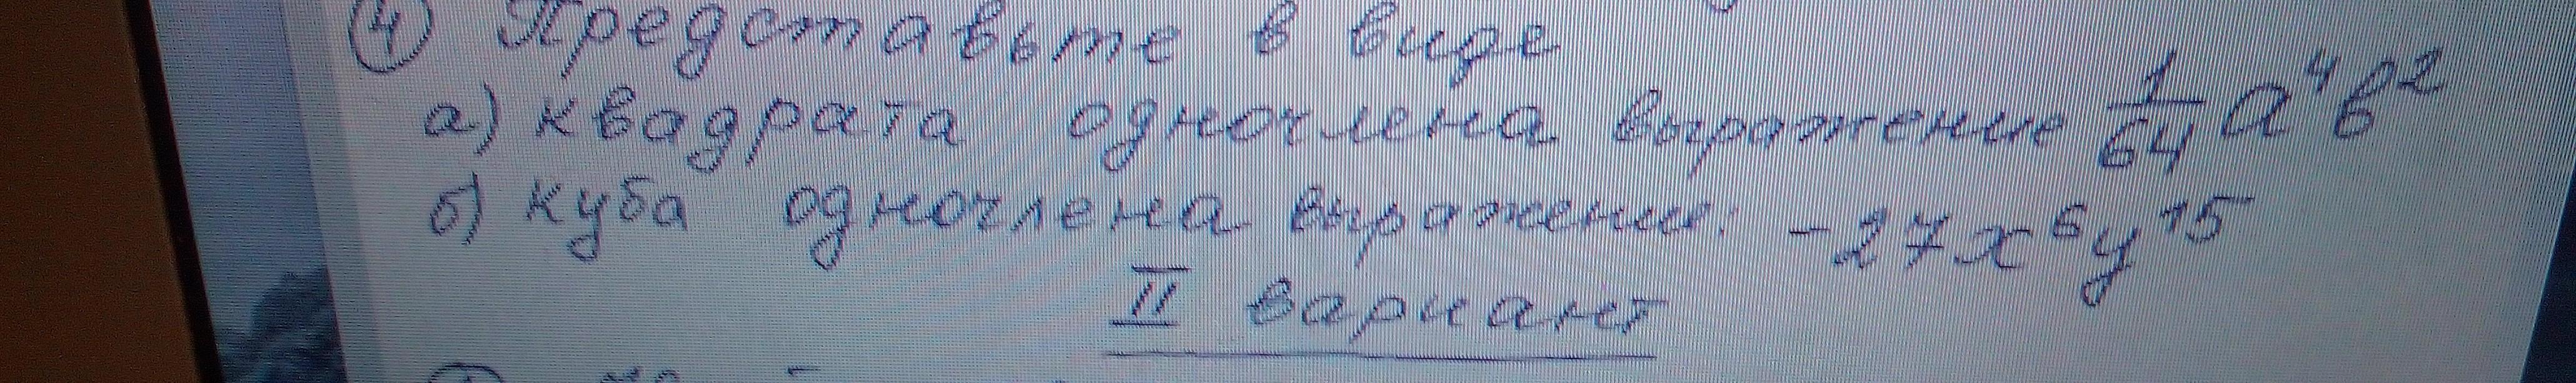 ④ Представьте в виде
а) квадрата одночлена выражение 1/64 a⁴b²
б) куба одночлена выражение: -27x⁶y¹⁵
II вариант